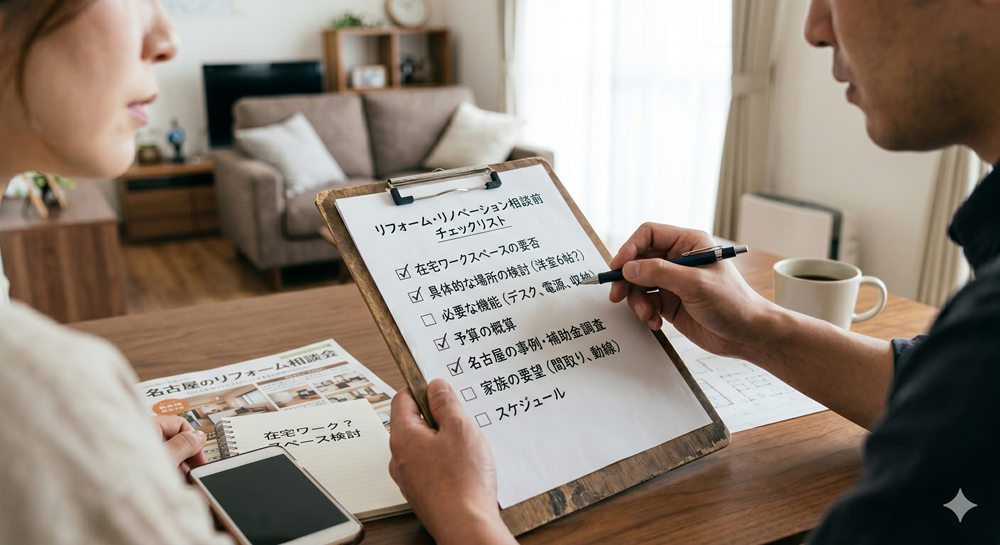 リフォーム・リノベーション相談前
チェックリスト
在宅ワークスペースの要否
具体的な場所の検討（洋室6帖？）
必要な機能（デスク、電源、収納）
予算の概算
名古屋の事例・補助金調査
家族の要望（間取り、動線）
スケジュール
名古屋のリフォーム相談会
在宅ワーク？
スペース検討